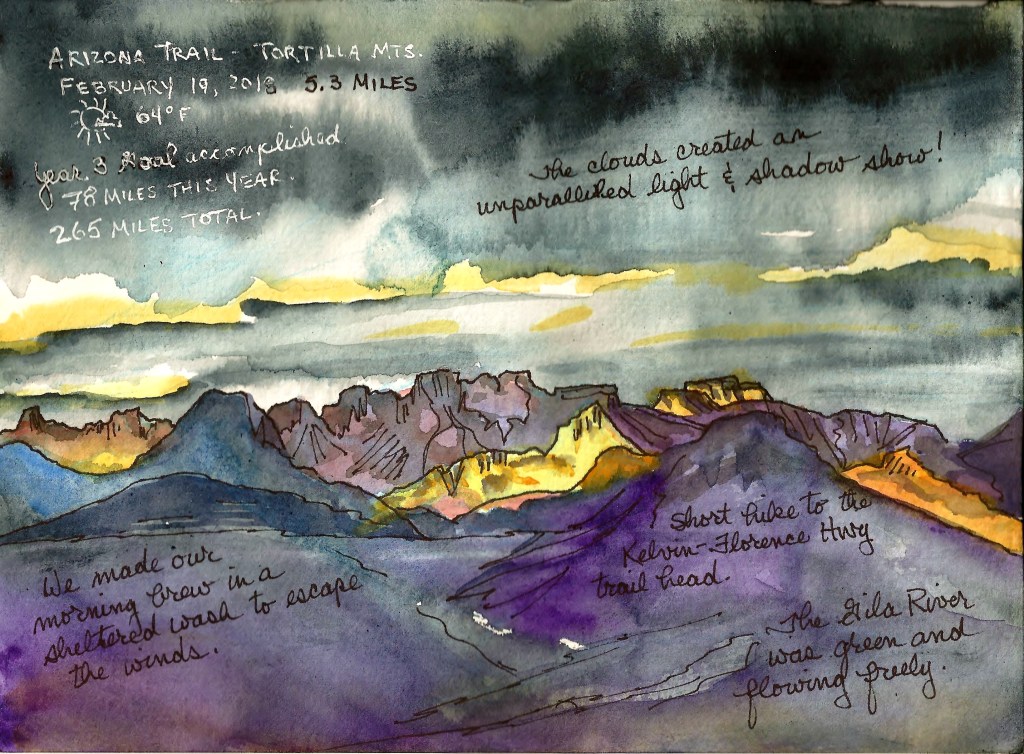 ARIZONA TRAIL - TORTILLA MTS.
FEBRUARY 19, 2018 5.3 MILES
64°F
Year 3 Goal accomplished
78 MILES THIS YEAR.
265 MILES TOTAL.
The clouds created an
unparalleled light & shadow show!
Short hike to the
Kelvin-Florence Hwy
trail head.
We made our
morning brew in a
sheltered wash to escape
the winds.
The Gila River
was green and
flowing freely.